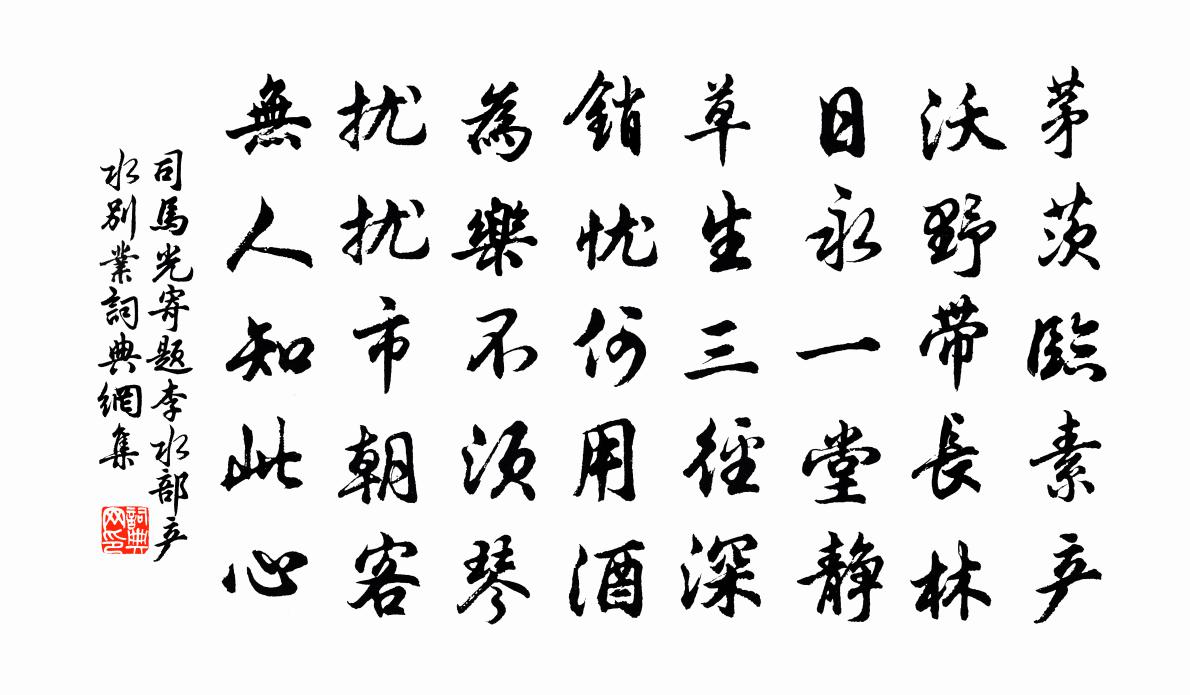 茅茨臨素产
沃野带長林
日永一堂静
草生三徑深
銷忧何用酒
為樂不须琴
扰扰市朝客
無人知此心
司馬光寄题李水部产
水别業詞典網集
詞典
网印